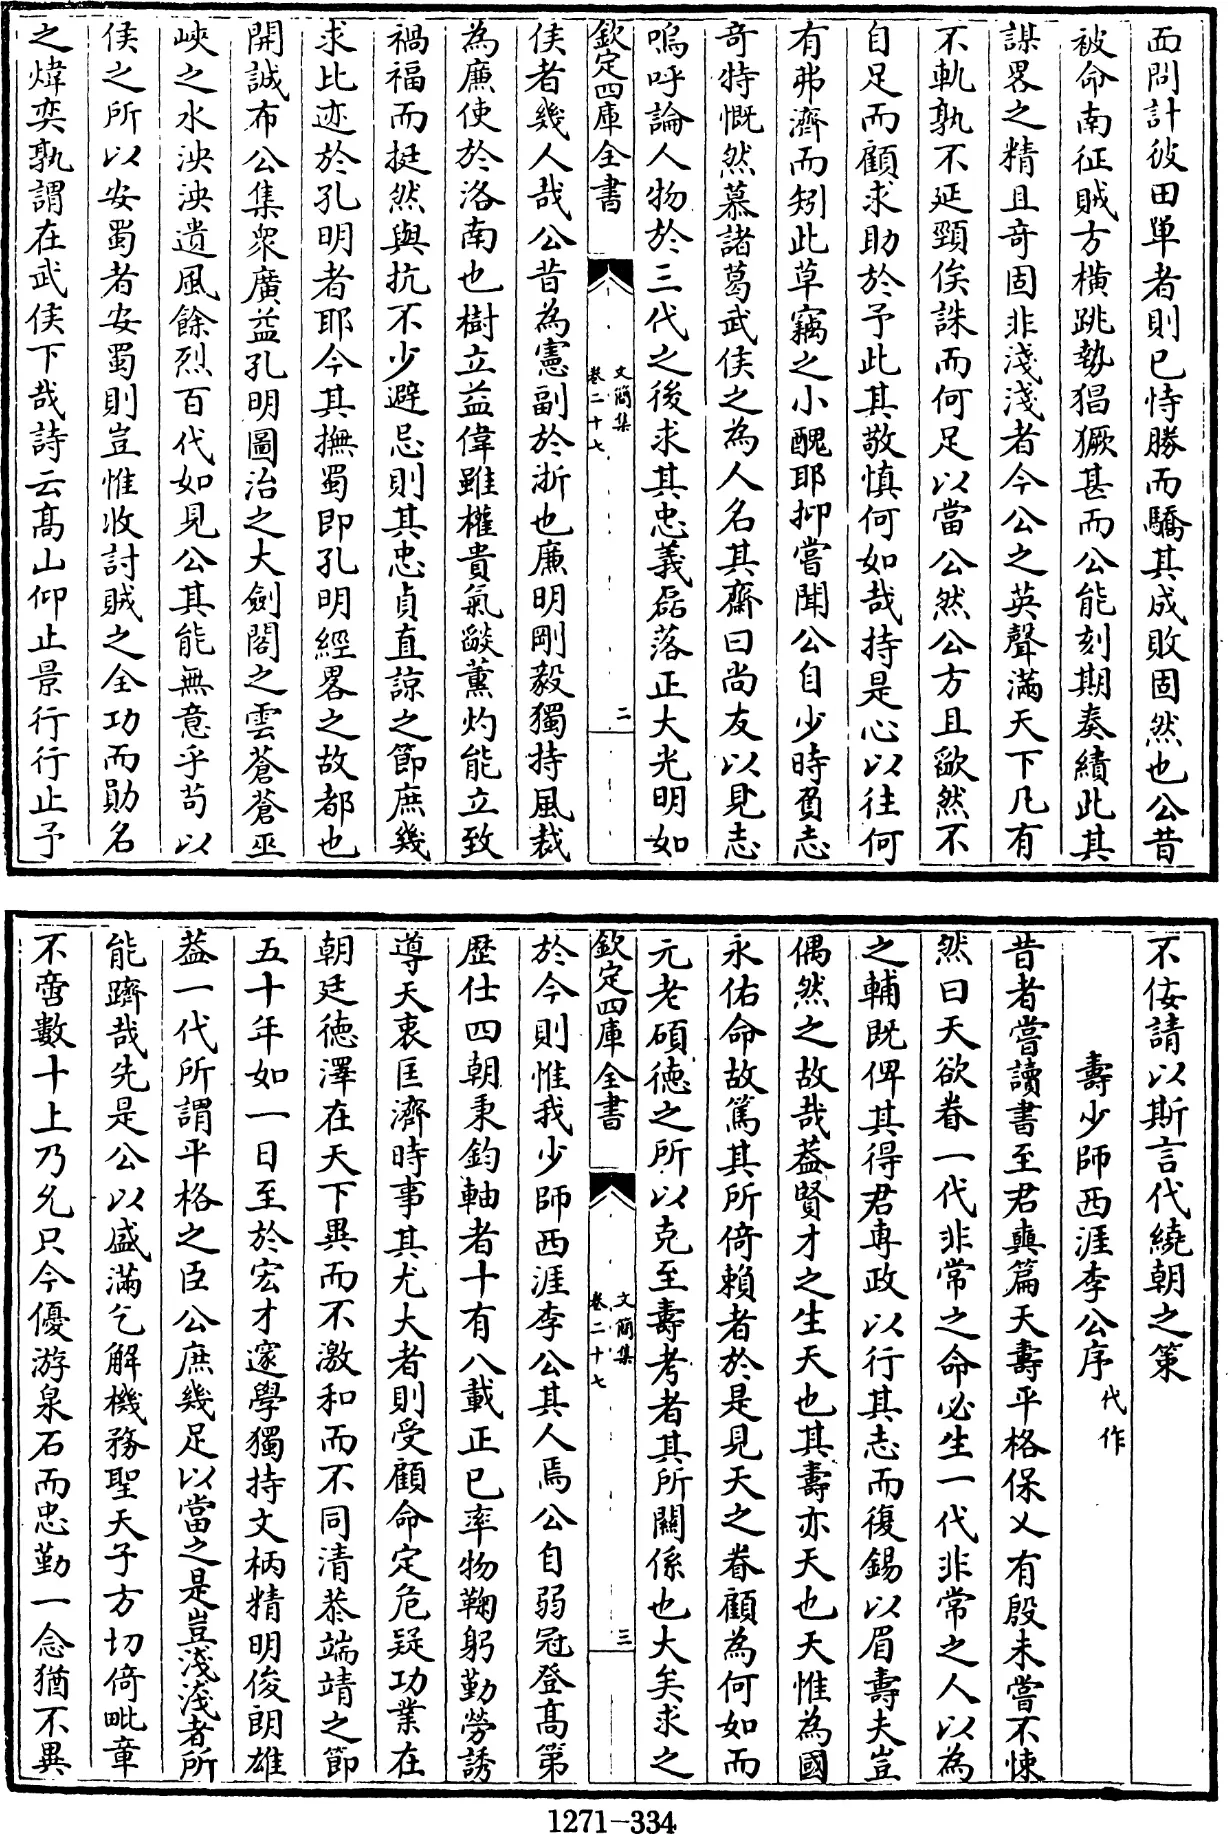 而問計彼田單者則已恃勝而驕其成敗固然也公昔
被命南征賊方橫跳勢猖獗甚而公能刻期奏績此其
謀畧之精且奇固非淺淺者今公之英聲滿天下凡有
不軌孰不延頸俟誅而何足以當公然公方且欿然不
自足而顧求助於予此其敬慎何如哉持是心以往何
有弗濟而矧此草竊之小醜耶抑嘗聞公自少時負志
奇特慨然慕諸葛武侯之為人名其齋曰尚友以見志
嗚呼論人物於三代之後求其忠義磊落正大光明如
欽定四庫全書
文簡集
卷二十七
二
侯者幾人哉公昔為憲副於浙也廉明剛毅獨持風裁
為廉使於洛南也樹立益偉雖權貴氣燄薰灼能立致
禍福而挺然與抗不少避忌則其忠貞直諒之節庶幾
求比迹於孔明者耶今其撫蜀即孔明經畧之故都也
開誠布公集衆廣益孔明圖治之大劍閣之雲蒼蒼巫
峽之水泱泱遺風餘烈百代如見公其能無意乎茍以
侯之所以安蜀者安蜀則豈惟收討賊之全功而勛名
之煒奕孰謂在武侯下哉詩云髙山仰止景行行止予
不佞請以斯言代繞朝之策
壽少師西涯李公序代作
昔者嘗讀書至君奭篇天壽平格保乂有殷未嘗不悚
然曰天欲眷一代非常之命必生一代非常之人以為
之輔既俾其得君專政以行其志而復錫以眉壽夫豈
偶然之故哉葢賢才之生天也其壽亦天也天惟為國
永佑命故篤其所倚賴者於是見天之眷顧為何如而
元老碩德之所以克至壽考者其所關係也大矣求之
欽定四庫全書
文簡集
卷二十七
三
於今則惟我少師西涯李公其人焉公自弱冠登髙第
歷仕四朝秉鈞軸者十有八載正己率物鞠躬勤勞誘
導天衷匡濟時事其尤大者則受顧命定危疑功業在
朝廷德澤在天下異而不激和而不同清恭端靖之節
五十年如一日至於宏才邃學獨持文柄精明俊朗雄
葢一代所謂平格之臣公庶幾足以當之是豈淺淺者所
能躋哉先是公以盛滿乞解機務聖天子方切倚毗章
不啻數十上乃允只今優游泉石而忠勤一念猶不異
1271-334